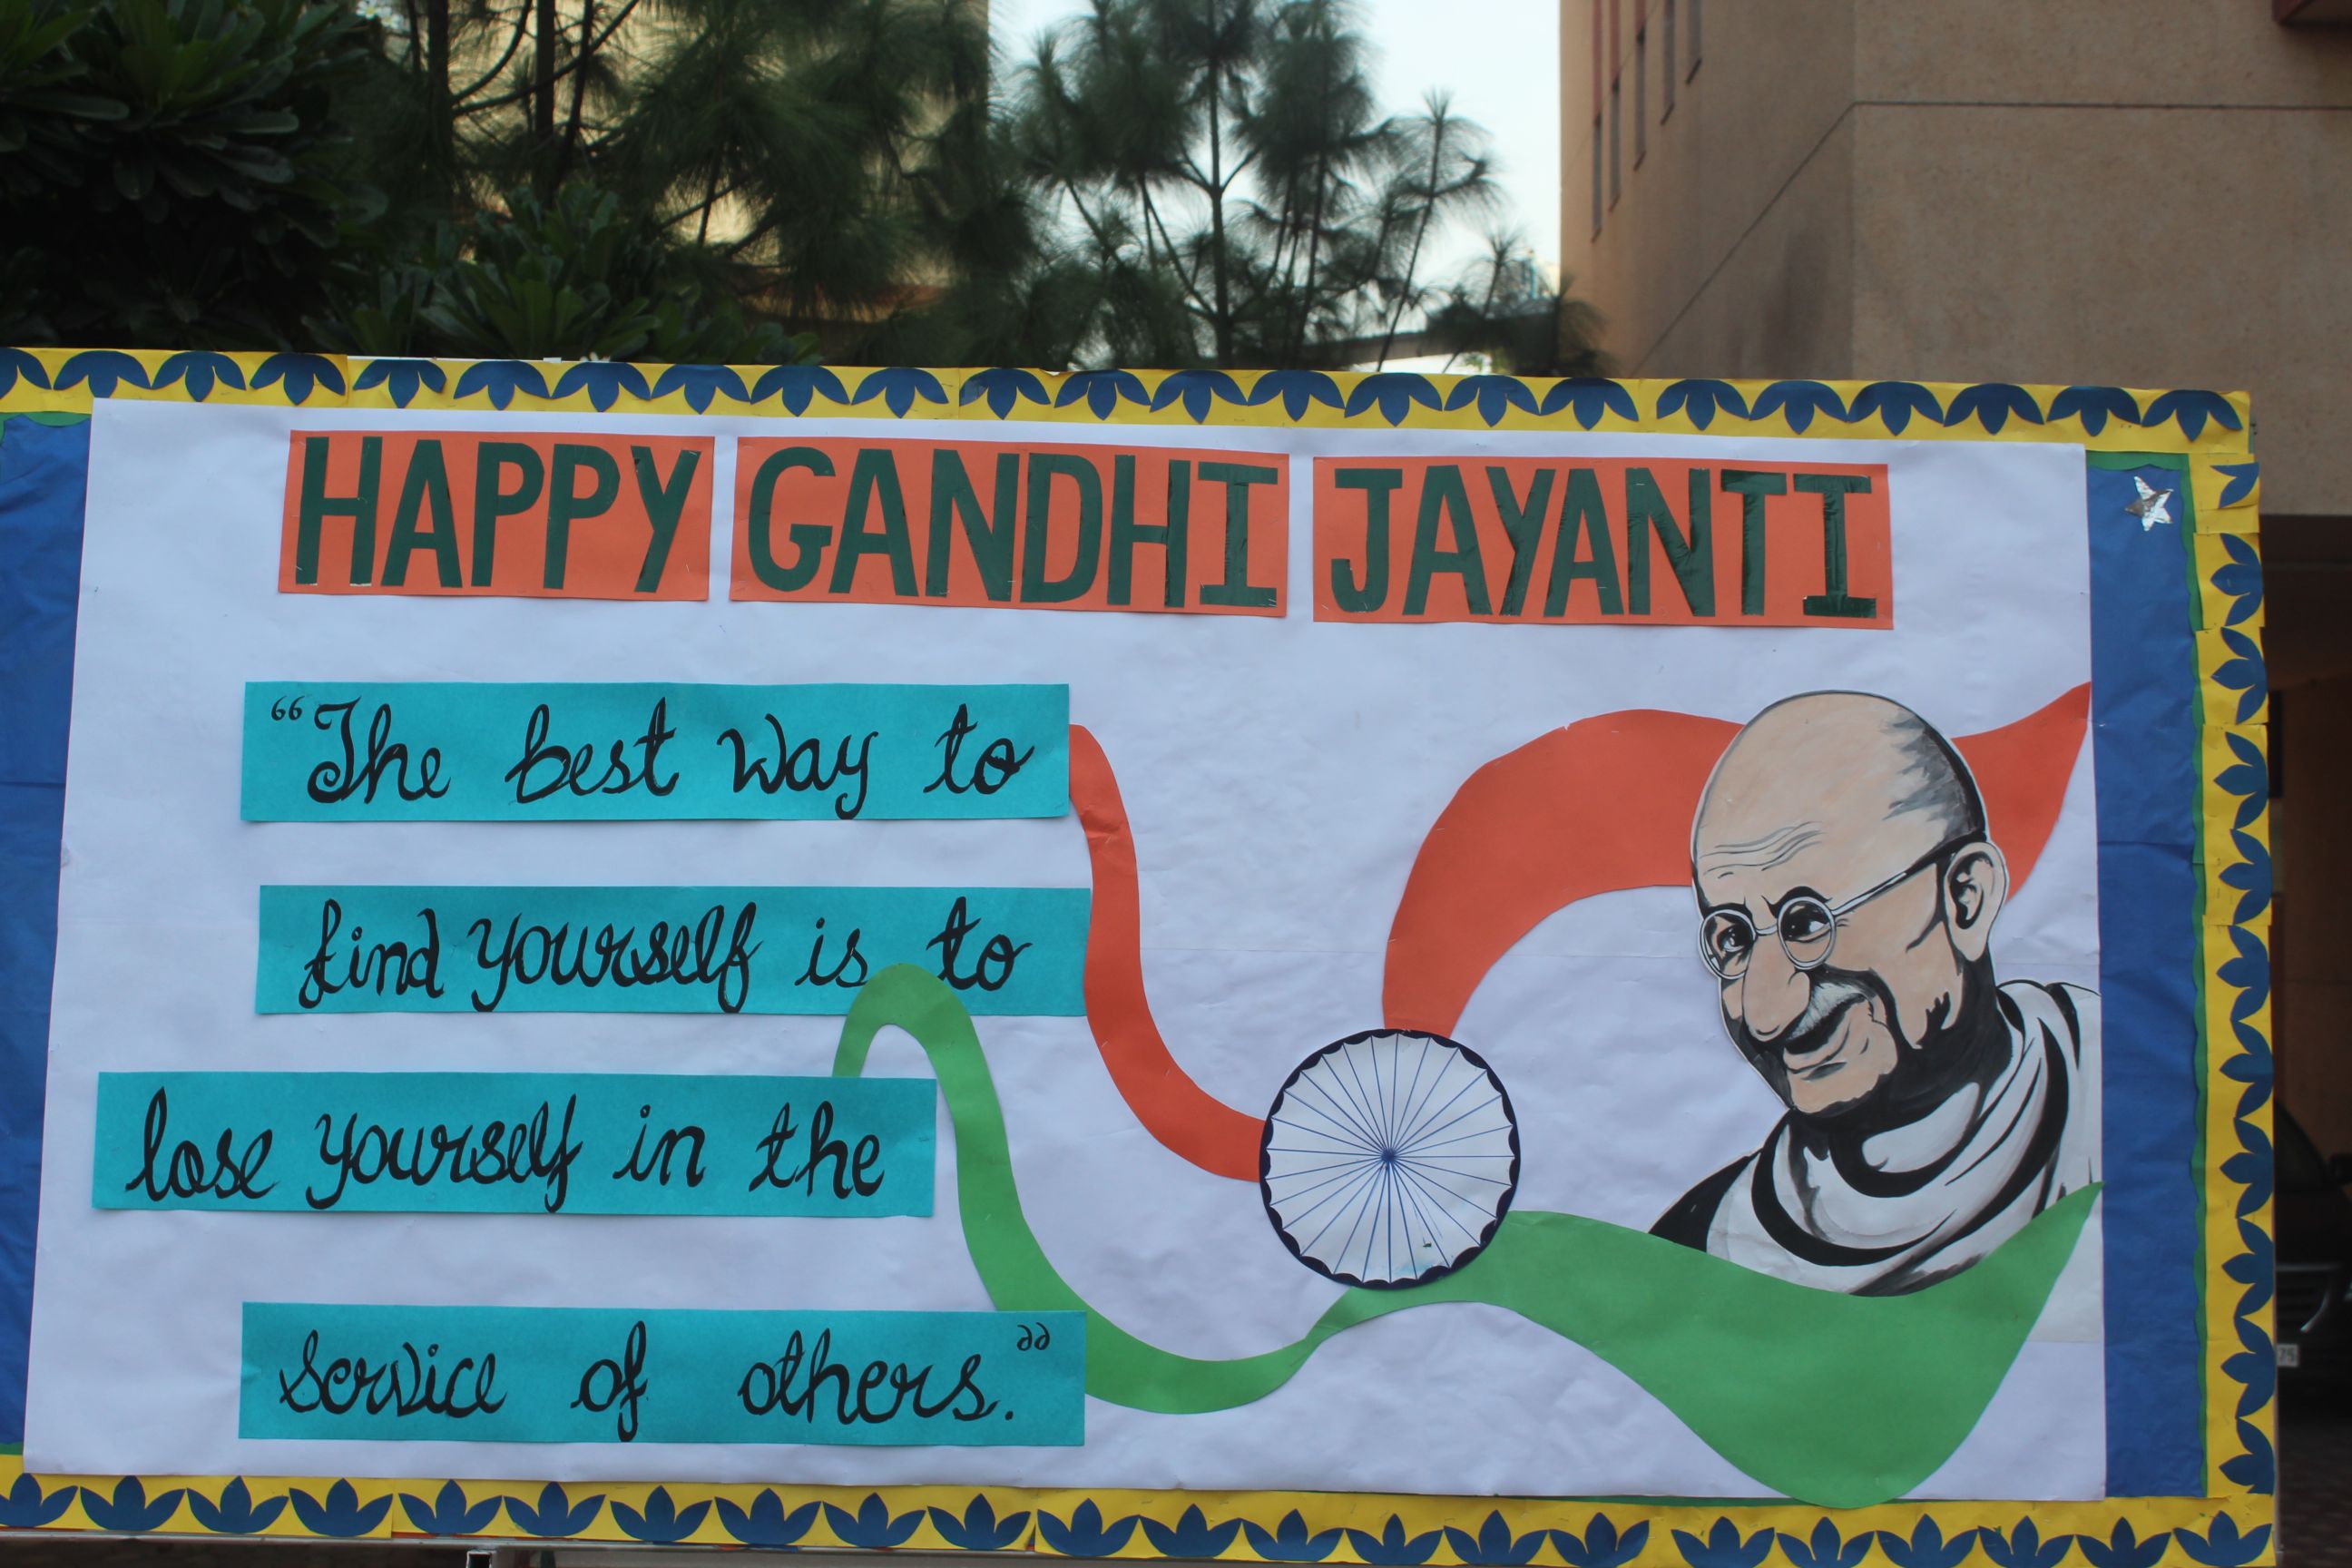 HAPPY GANDHI JAYANTI
“The best way to
find yourself is to
lose yourself in the
service of others.”
75